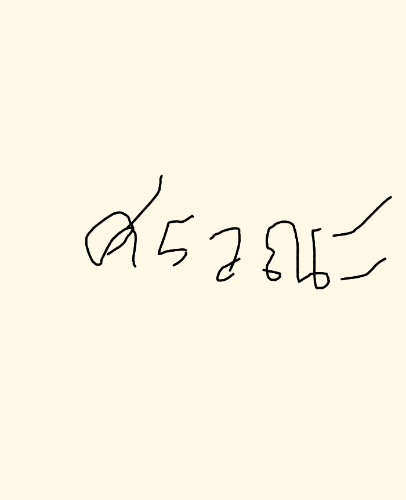 ศรวณะ